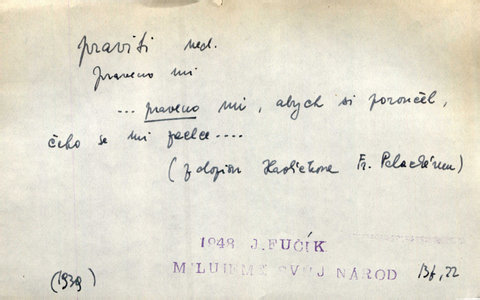 praviti ned.
praveno mi
... praveno mi, abych si poručel,
čeho se mi zachce....
(z dopisu Havlíčkova Fr. Palackému)
1948 J. FUČÍK
MILUJEME SVŮJ NÁROD
(1939) 22